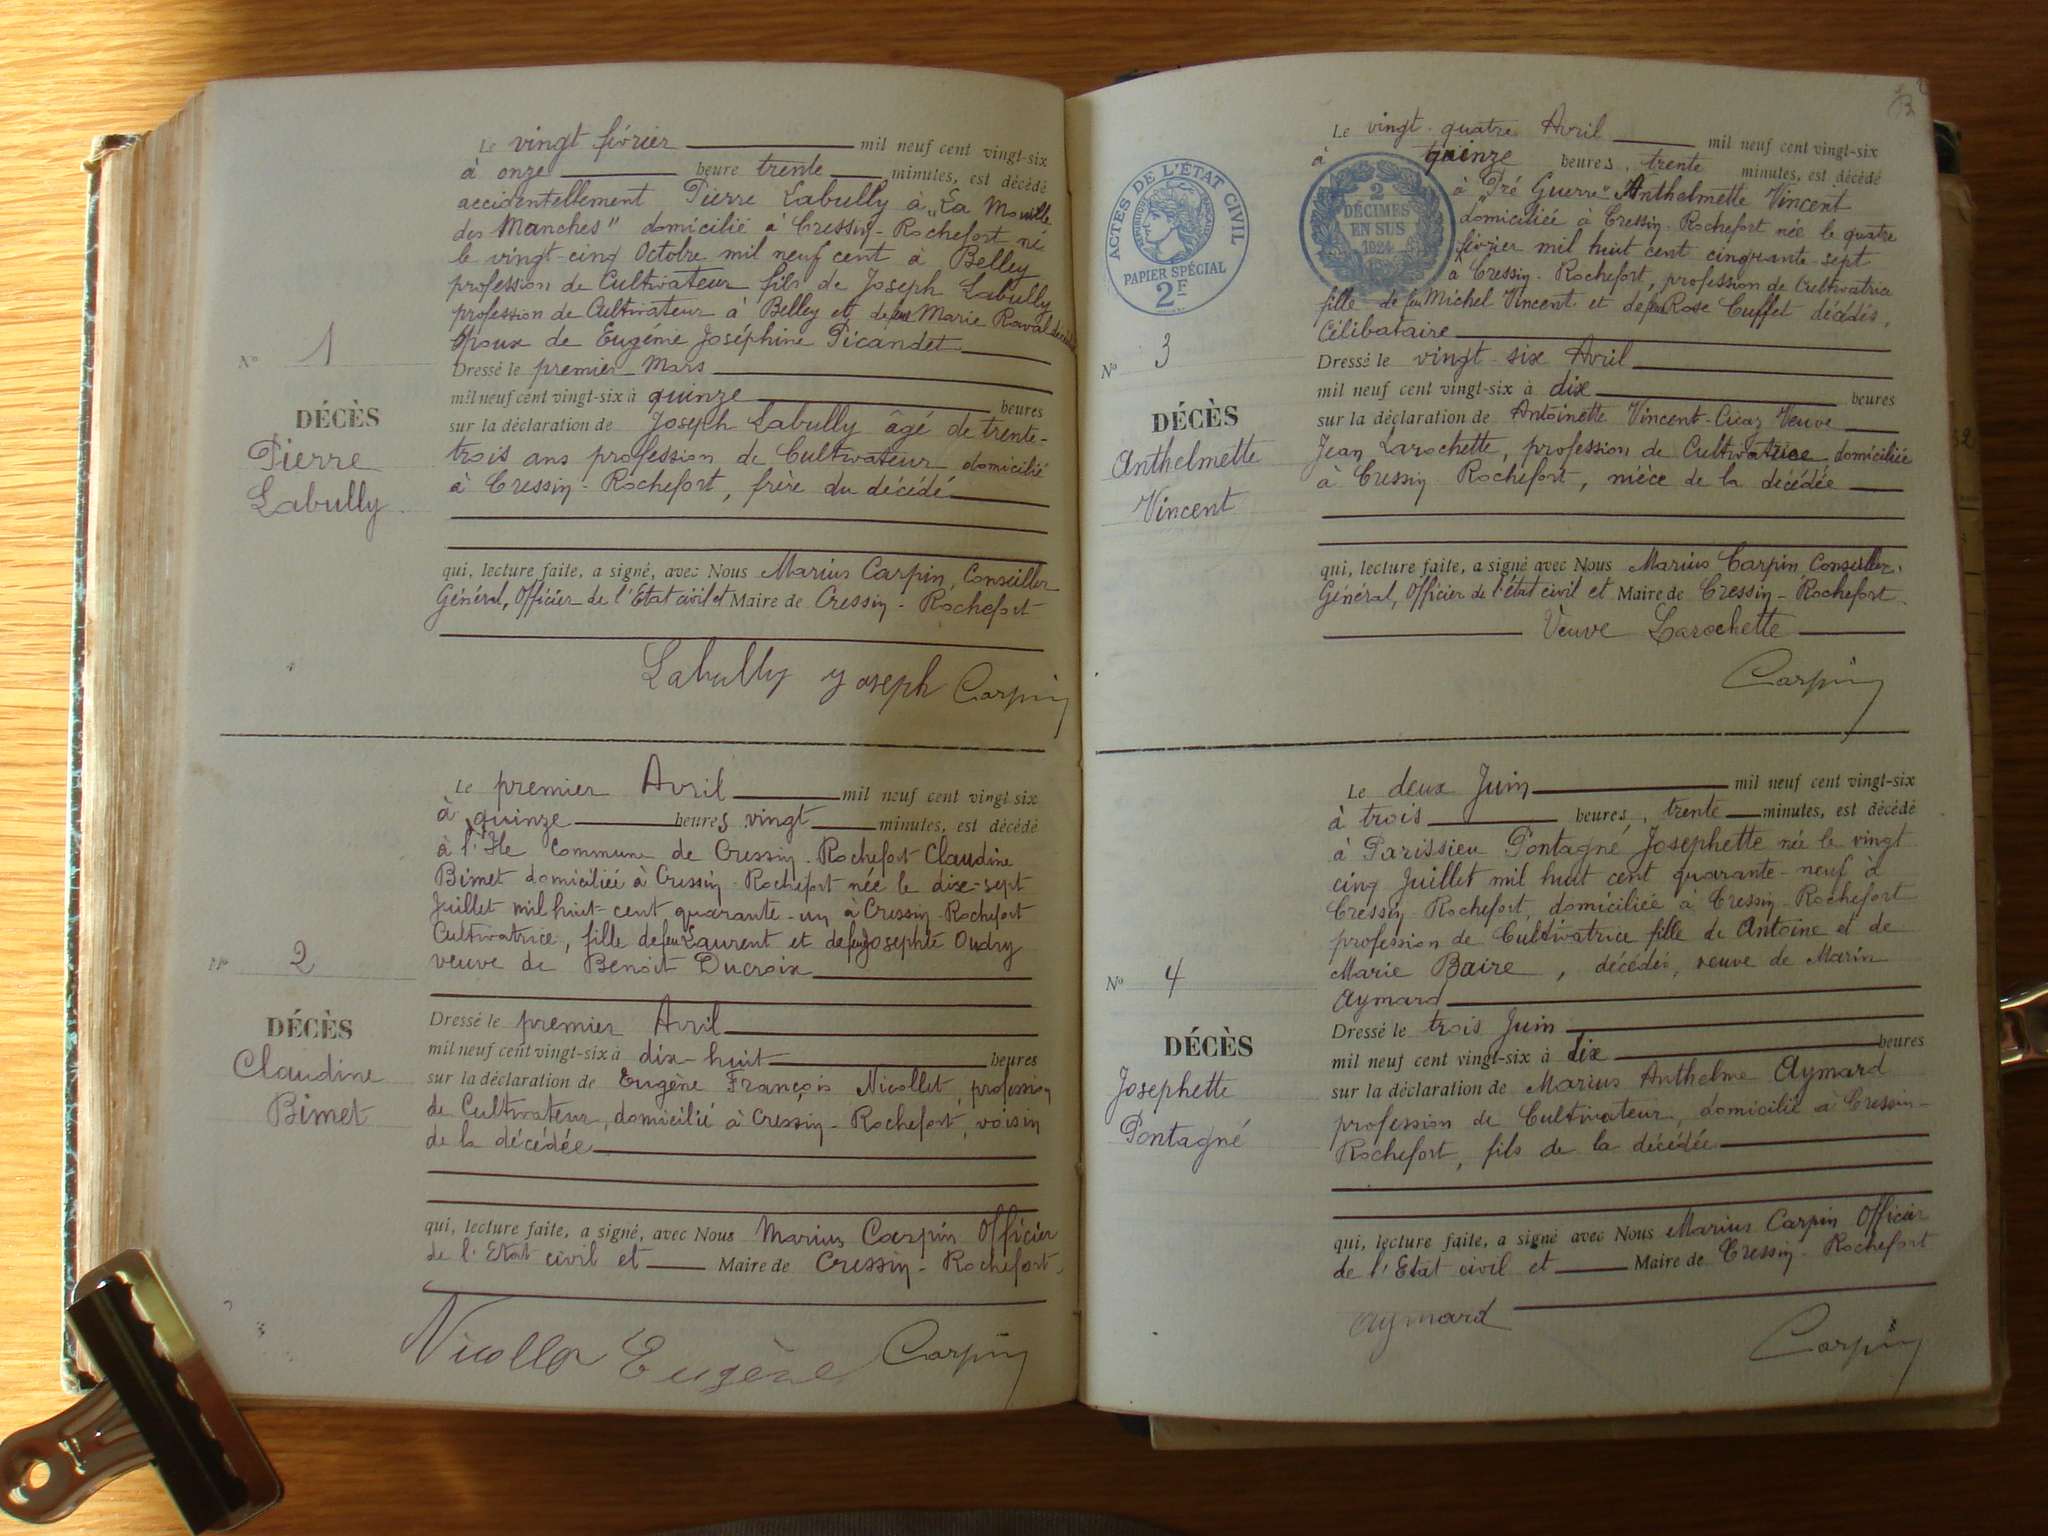 Le vingt février mil neuf cent vingt-six
à onze heure trente minutes, est décédé
accidentellement Pierre Labully à "La
des Manches" domicilié à Cressin-Rochefort né
le vingt-cinq Octobre mil neuf cent à Belley
profession de Cultivateur fils de Joseph Labully
profession de Cultivateur à Belley et de feu Marie Raval décédée
Epoux de Eugénie Joséphine Picandet
Nº 1
Dressé le premier Mars
mil neuf cent vingt-six à quinze heures
DÉCÈS
sur la déclaration de Joseph Labully âgé de trente-
Pierre
trois ans profession de Cultivateur domicilié
Labully
à Cressin-Rochefort, frère du décédé
qui, lecture faite, a signé, avec Nous Marius Carpin, Conseiller
Général, Officier de l'Etat civil et Maire de Cressin-Rochefort
Labully Joseph Carpin
Le premier Avril mil neuf cent vingt-six
à quinze heures vingt minutes, est décédé
à l'Ile commune de Cressin-Rochefort Claudine
Bimet domiciliée à Cressin-Rochefort née le dix-sept
Juillet mil huit-cent quarante-un à Cressin-Rochefort
Cultivatrice, fille de feu Laurent et de feu Josephte Oudry
Nº 2
veuve de Benoit Ducroix
DÉCÈS
Dressé le premier Avril
mil neuf cent vingt-six à dix-huit heures
Claudine
sur la déclaration de Eugène François Nicollet, profession
Bimet
de Cultivateur, domicilié à Cressin-Rochefort, voisin
de la décédée
qui, lecture faite, a signé, avec Nous Marius Carpin Officier
de l'Etat civil et Maire de Cressin-Rochefort.
Eugène Carpin
Le vingt-quatre Avril mil neuf cent vingt-six
à quinze heures, trente minutes, est décédé
à "Pré Guerre" Anthelmette Vincent
domiciliée à Cressin-Rochefort née le quatre
février mil huit cent cinquante-sept
à Cressin-Rochefort, profession de Cultivatrice
fille de feu Michel Vincent et de feu Rose Cuffet décédés,
Célibataire
ACTES DE L'ÉTAT CIVIL
PAPIER SPÉCIAL
2F
2
DÉCIMES
EN SUS
1924
Nº 3
Dressé le vingt-six Avril
mil neuf cent vingt-six à dix heures
DÉCÈS
sur la déclaration de Antoinette Vincent- Veuve
Anthelmette
Jean Larochette, profession de Cultivatrice domiciliée
Vincent
à Cressin Rochefort, nièce de la décédée
qui, lecture faite, a signé avec Nous Marius Carpin Conseiller
Général, Officier de l'état civil et Maire de Cressin-Rochefort
Veuve Larochette
Carpin
Le deux Juin mil neuf cent vingt-six
à trois heures, trente minutes, est décédé
à Parissieu Pontagné Josephette née le vingt
cinq Juillet mil huit cent quarante-neuf à
Cressin-Rochefort, domiciliée à Cressin-Rochefort
profession de Cultivatrice fille de Antoine et de
Marie Baire, décédés, veuve de Marin
Aymard
Nº 4
DÉCÈS
Dressé le trois Juin
mil neuf cent vingt-six à dix heures
Josephette
sur la déclaration de Marius Anthelme Aymard
Pontagné
profession de Cultivateur, domicilié à Cressin-
Rochefort, fils de la décédée
qui, lecture faite, a signé avec Nous Marius Carpin Officier
de l'Etat civil et Maire de Cressin-Rochefort
Aymard
Carpin